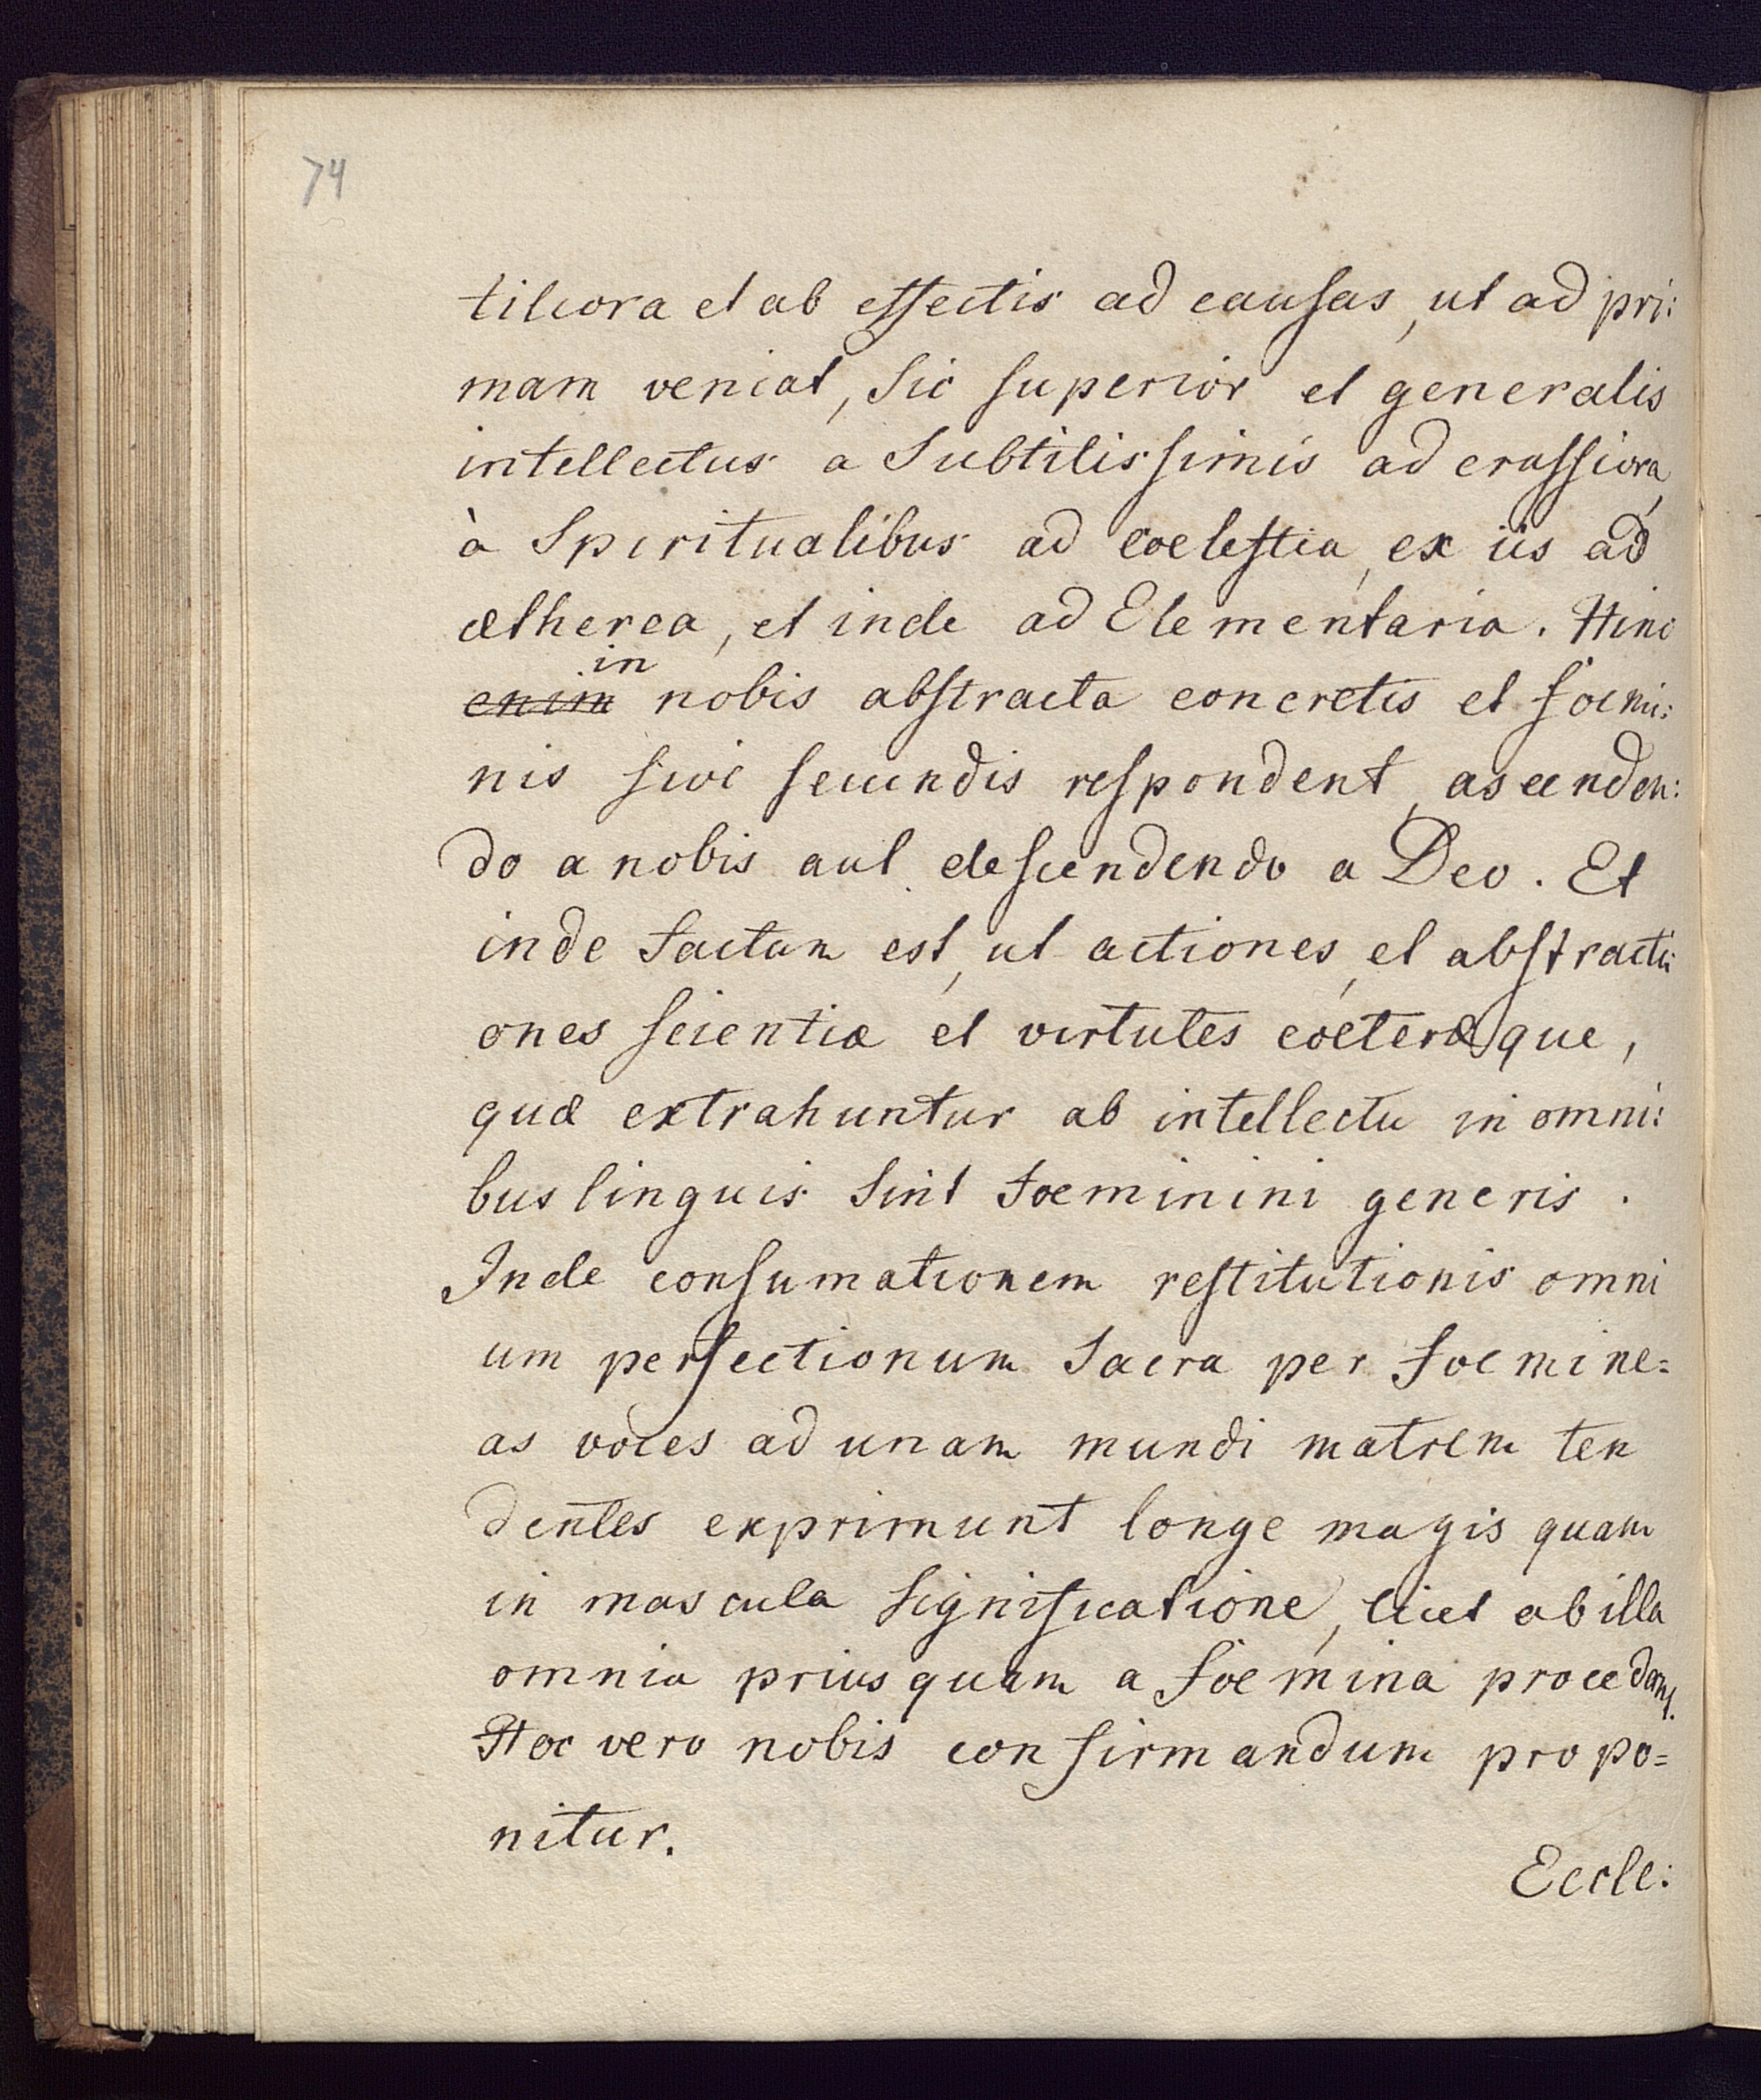 74
tiliora et ab effectis ad causas, ut ad pri:
mam veniat, sic superior et generalis
intellectus a Subtilissimis ad crassiora,
à Spiritualibus ad coelestia, ex iis ad
ætherea, et inde ad Elementaria. Hinc
in
enim nobis abstracta concretis et foemi:
nis sive secundis respondent, ascenden:
do a nobis aut descendendo a Deo. Et
inde factum est, ut actiones, et abstracti
ones scientiæ et virtutes coeteræque,
quæ extrahuntur ab intellectu in omni:
bus linguis sint foeminini generis.
Inde consumationem restitutionis omni
um perfectionum Sacra per foemine=
as voces ad unam mundi matrem ten
dentes exprimunt longe magis quam
in mascula significatione, licet ab illa
omnia prius quam a foemina procedant.
Hoc vero nobis confirmandum propo=
nitur.
Eccle: